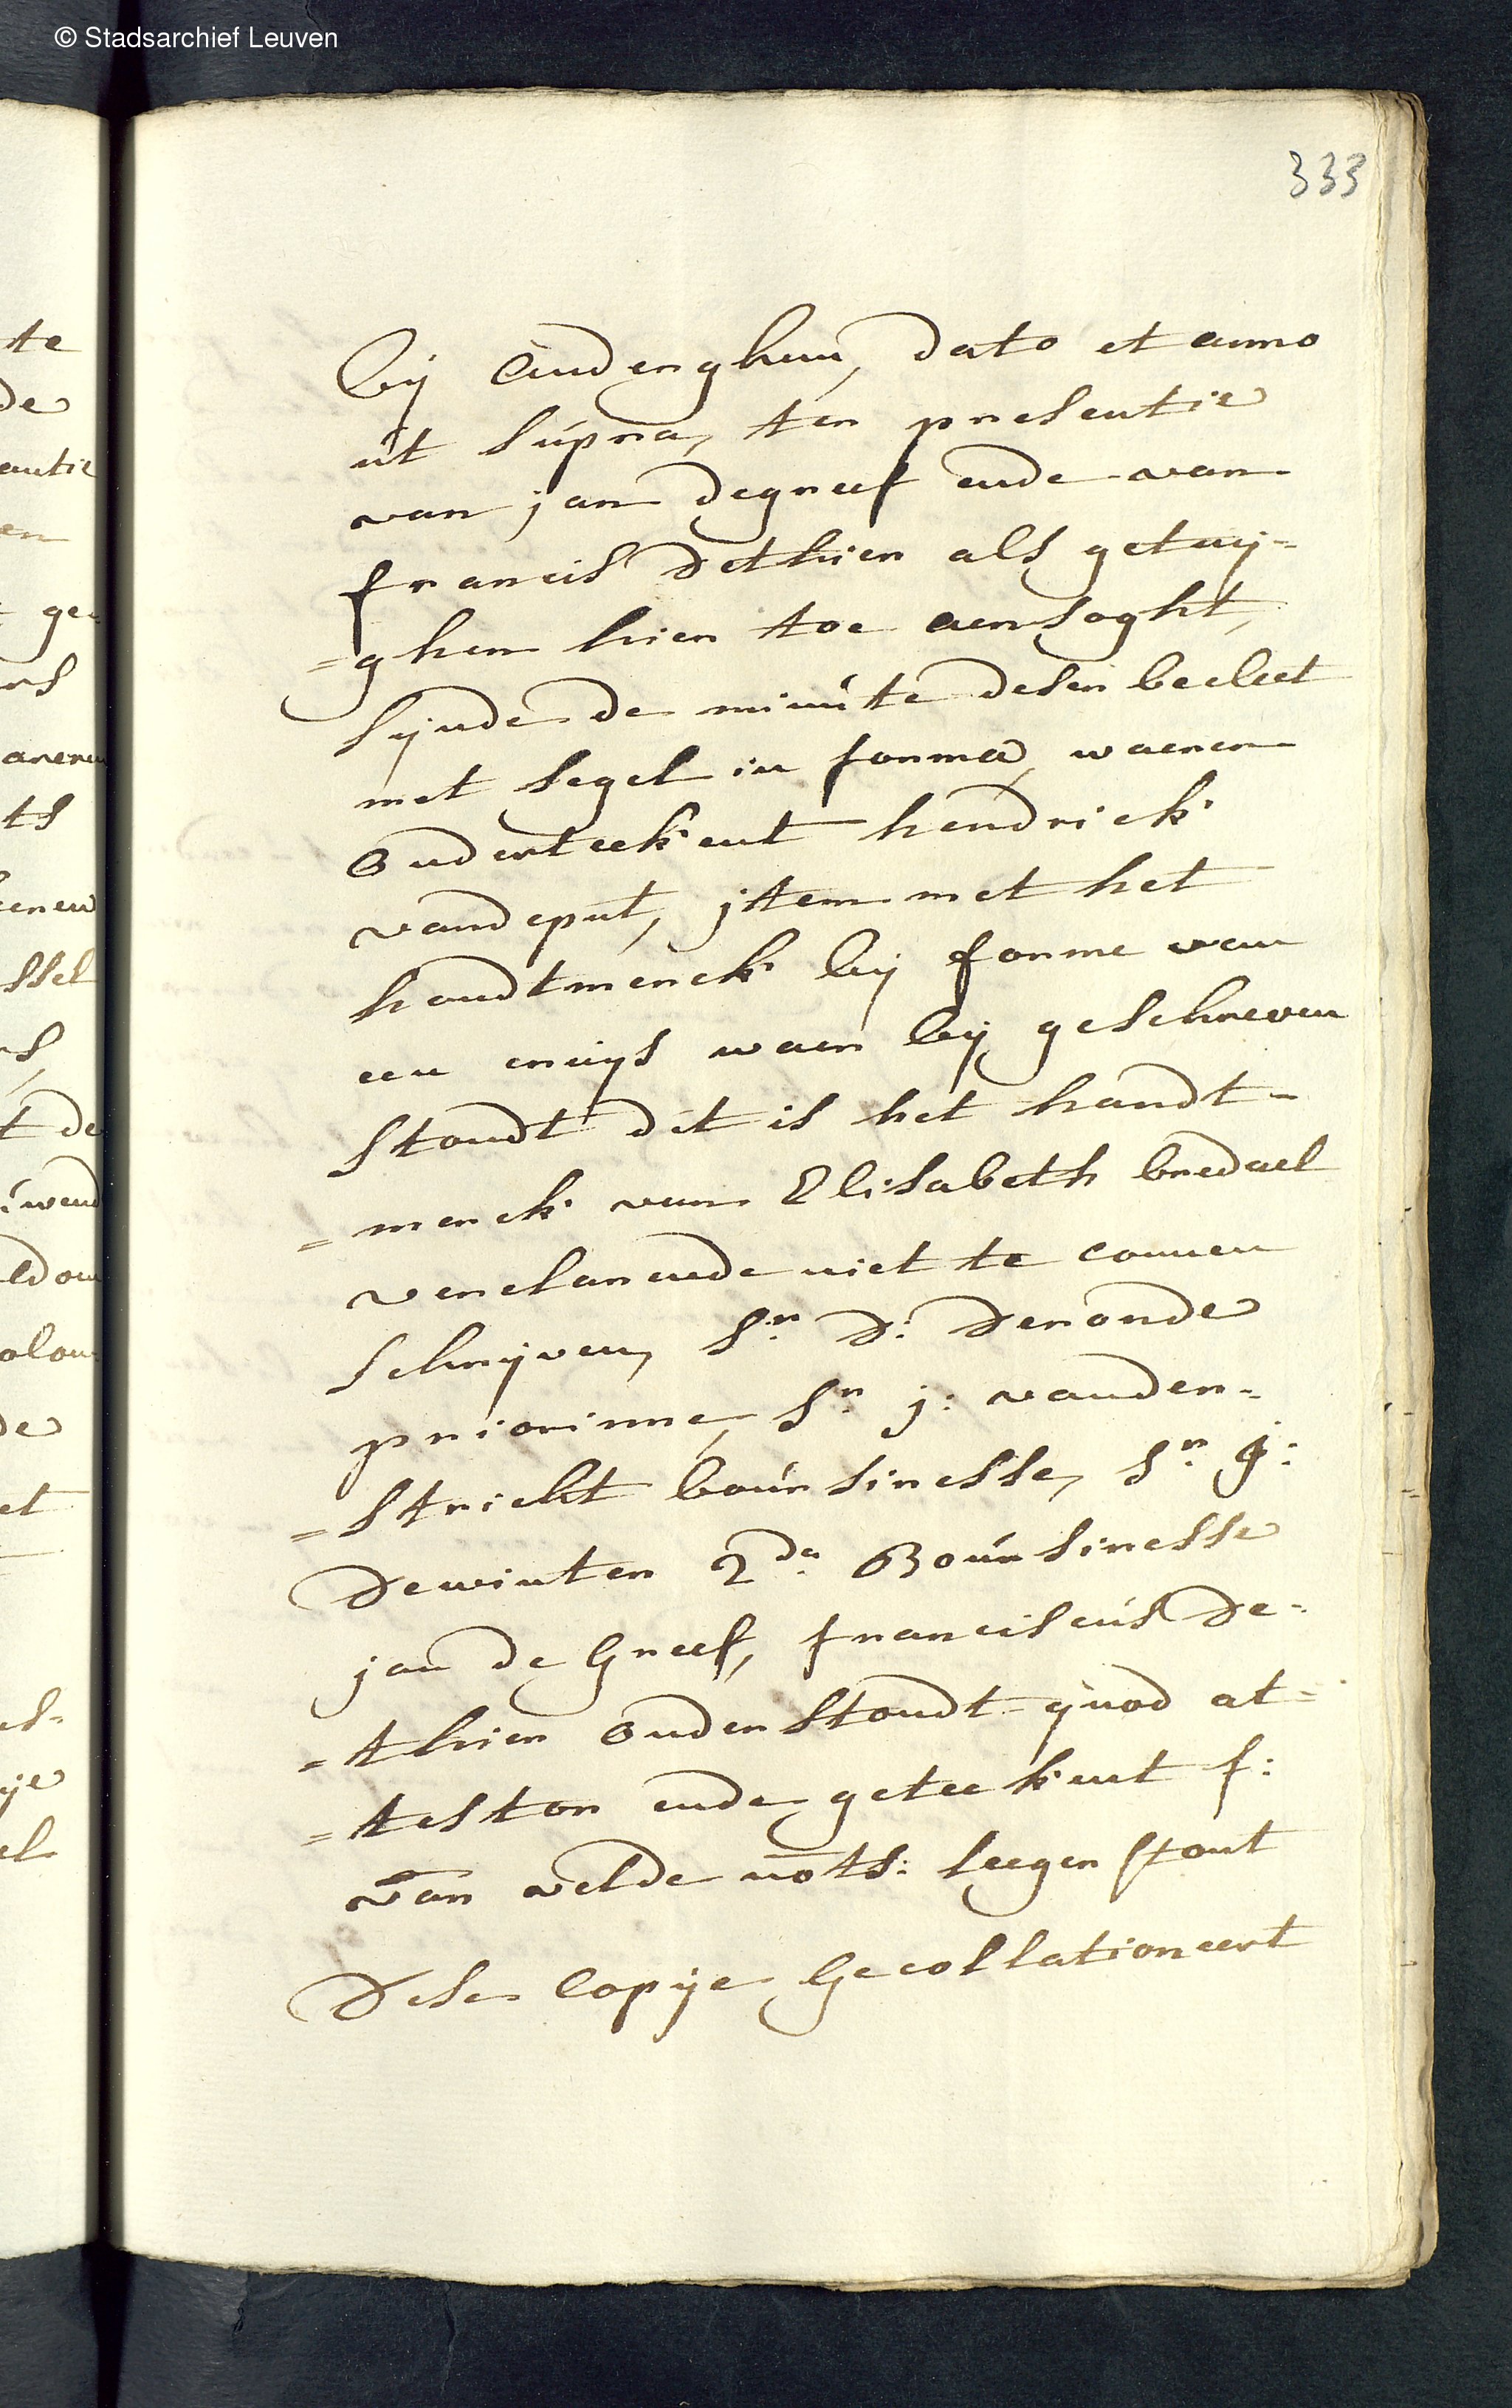 © Stadsarchief Leuven
333
bij Auderghem, dato et anno
ut súpra, ter presentie
van jan degreef ende van
francis dethier als getuij=
=ghen hier toe aensoght,
sijnde de minúte deser becleet
met segel in forma, waeren
onderteekent hendrick
vandeput, jtem met het
handtmerck bij forme van
een cruijs waer bij geschreven
stondt dit is het handt=
=merck van Elisabeth bredael
verclarende niet te connen
schrijven, Sr. d: deronde
priorinne, Sr. j: vander=
=stricht boúrsiresse, Sr. g:
dewinter 2de. Boúrsiresse
jan de Greef, franciscús de=
=thier onderstondt quod at=
=testor ende geteekent f:
van velde nots: leeger stont
dese Copije Gecollationeert
te
de
antie
en
ts
ssel
t de
de
et